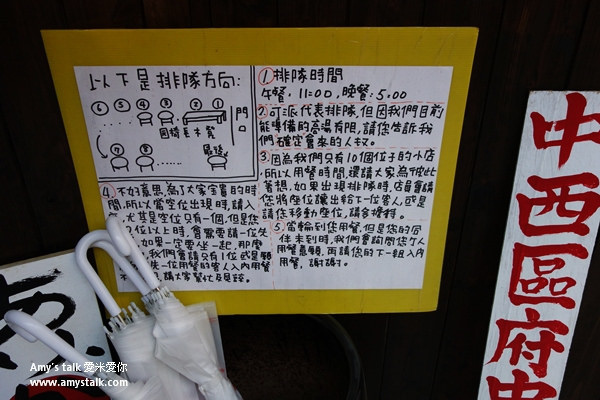 以下是排隊方向:
⑥ ⑤ ④ ③ ② ①
門口
⑦ ⑧
最後
① 排隊時間
午餐. 11:00 , 晚餐: 5:00
② 可派代表排隊, 但因我們目前
能準備的
有限, 請您告訴我
們確定會來的人数。
③ 因為我們只有10個位子的小店
所以用餐時間, 還請大家為彼此
著想, 如果出現排隊時, 店員會請
您將座位讓出給下一位客人, 或是
請您移動座位, 請多擔待。
④ 不好意思, 為了大家寶貴的時
間, 所以當空位出現時, 請入
尤其是空位只有一個, 但是您
位以上時, 會需要請一位先
如果一定要坐一起, 那麼
我們會請只有1位或是願
先一位用餐的客人入內用餐
請大家幫忙及見諒。
⑤ 當輪到您用餐, 但是您的同
伴未到時, 我們會詢問您个人
用餐意願, 再請您的下一組入內
用餐, 謝謝。
中西區府中
Amy's talk 愛米愛你
www.amystalk.com